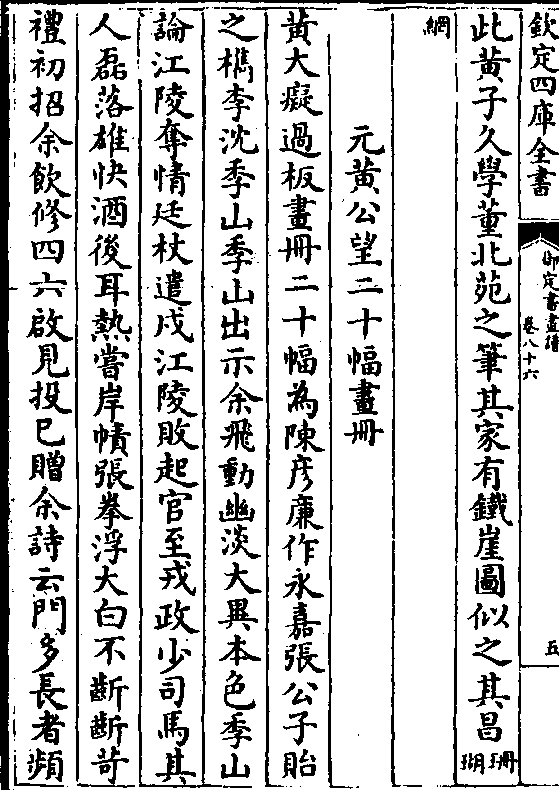 欽定四庫全書
御定書畫譜
卷八十六
五
此黄子久學董北苑之筆其家有鐵崖圖似之其昌珊瑚
網
元黄公望二十幅畫冊
黄大癡過板畫冊二十幅為陳彦廉作永嘉張公子貽
之檇李沈季山季山出示余飛動幽淡大異本色季山
論江陵奪情廷杖遣戍江陵敗起官至戎政少司馬其
人磊落雄快酒後耳熱嘗岸幘張拳浮大白不斷斷苛
禮初招余飲修四六啟見投已贈余詩云門多長者頻